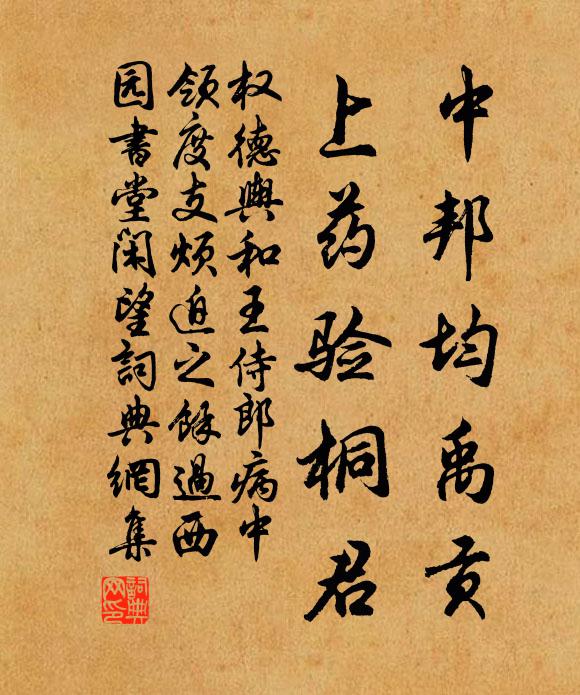 中邦均禹贡
上药验桐君
权德舆和王侍郎病中
领度支烦迫之馀過西
园書堂闲望詞典網集
詞典网印